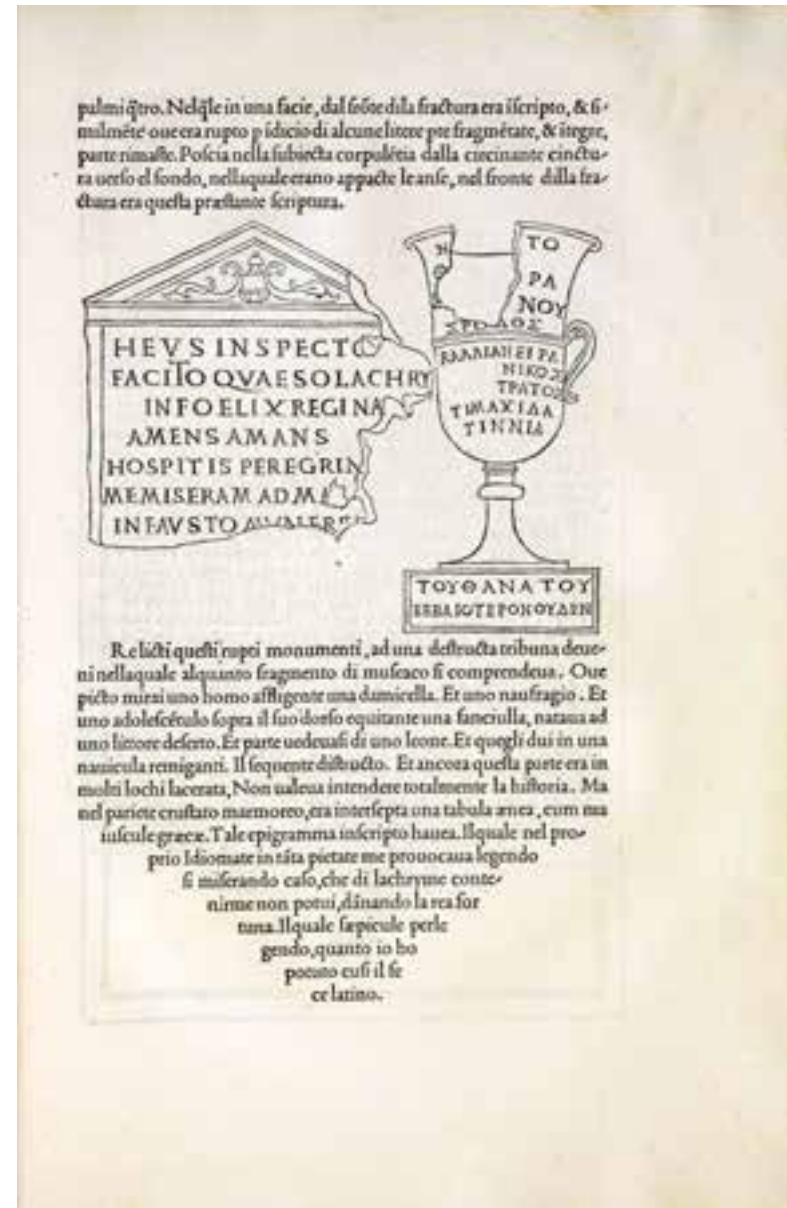 palmi q̃tro. Nelq̃le in una facie, dal frõte dila fractura era ĩscripto, & si-
milmẽte oue era rupto p ĩdicio di alcune litere pte fragmẽtate, & ĩtegre,
parte rimaste. Poscia nella subiecta corpulẽtia dalla circinante cinctu-
ra uerso el fondo, nellaquale erano appacte le anse, nel fronte dilla fra-
ctura era questa præstante scriptura.
HEVS INSPECTO
FACITO QVAESO LACHRY
INFOELIX REGINA
AMENS AMANS
HOSPITIS PEREGRIN
ME MISERAM AD M
INFAVSTO
Η ΤΟ
ΡΑ
ΝΟΥ
ΝΙΚΟΣ
ΤΡΑΤΟΣ
ΤΙΜΑΧΙΔΑ
ΤΙΝΝΙΑ
ΤΟΥ ΘΑΝΑΤΟΥ
ΒΕΒΑΙΟΤΕΡΟΝ ΟΥΔΕΝ
Relicti questi rupti monumenti, ad una destructa tribuna deue-
ni nellaquale alquanto fragmento di museaco si comprendeua. Oue
picto mirai uno homo affligente una damicella. Et uno naufragio. Et
uno adolescẽtulo sopra il suo dorso equitante una fanciulla, nataua ad
uno littore deserto. Et parte uedeuasi di uno leone. Et quegli dui in una
nauicula remiganti. Il sequente distructo. Et ancora questa parte era in
molti lochi lacerata, Non ualeua intendere totalmente la historia. Ma
nel pariete crustato marmoreo, era intersepta una tabula ænea, cum ma
iuscule græce. Tale epigramma inscripto hauea. Ilquale nel pro-
prio Idiomate in tãta pietate me prouocaua legendo
si miserando caso, che di lachryme conte-
nirme non potui, dãnando la rea for
tuna. Ilquale sæpicule perle
gendo, quanto io ho
potuto cusi il fe
ce latino.